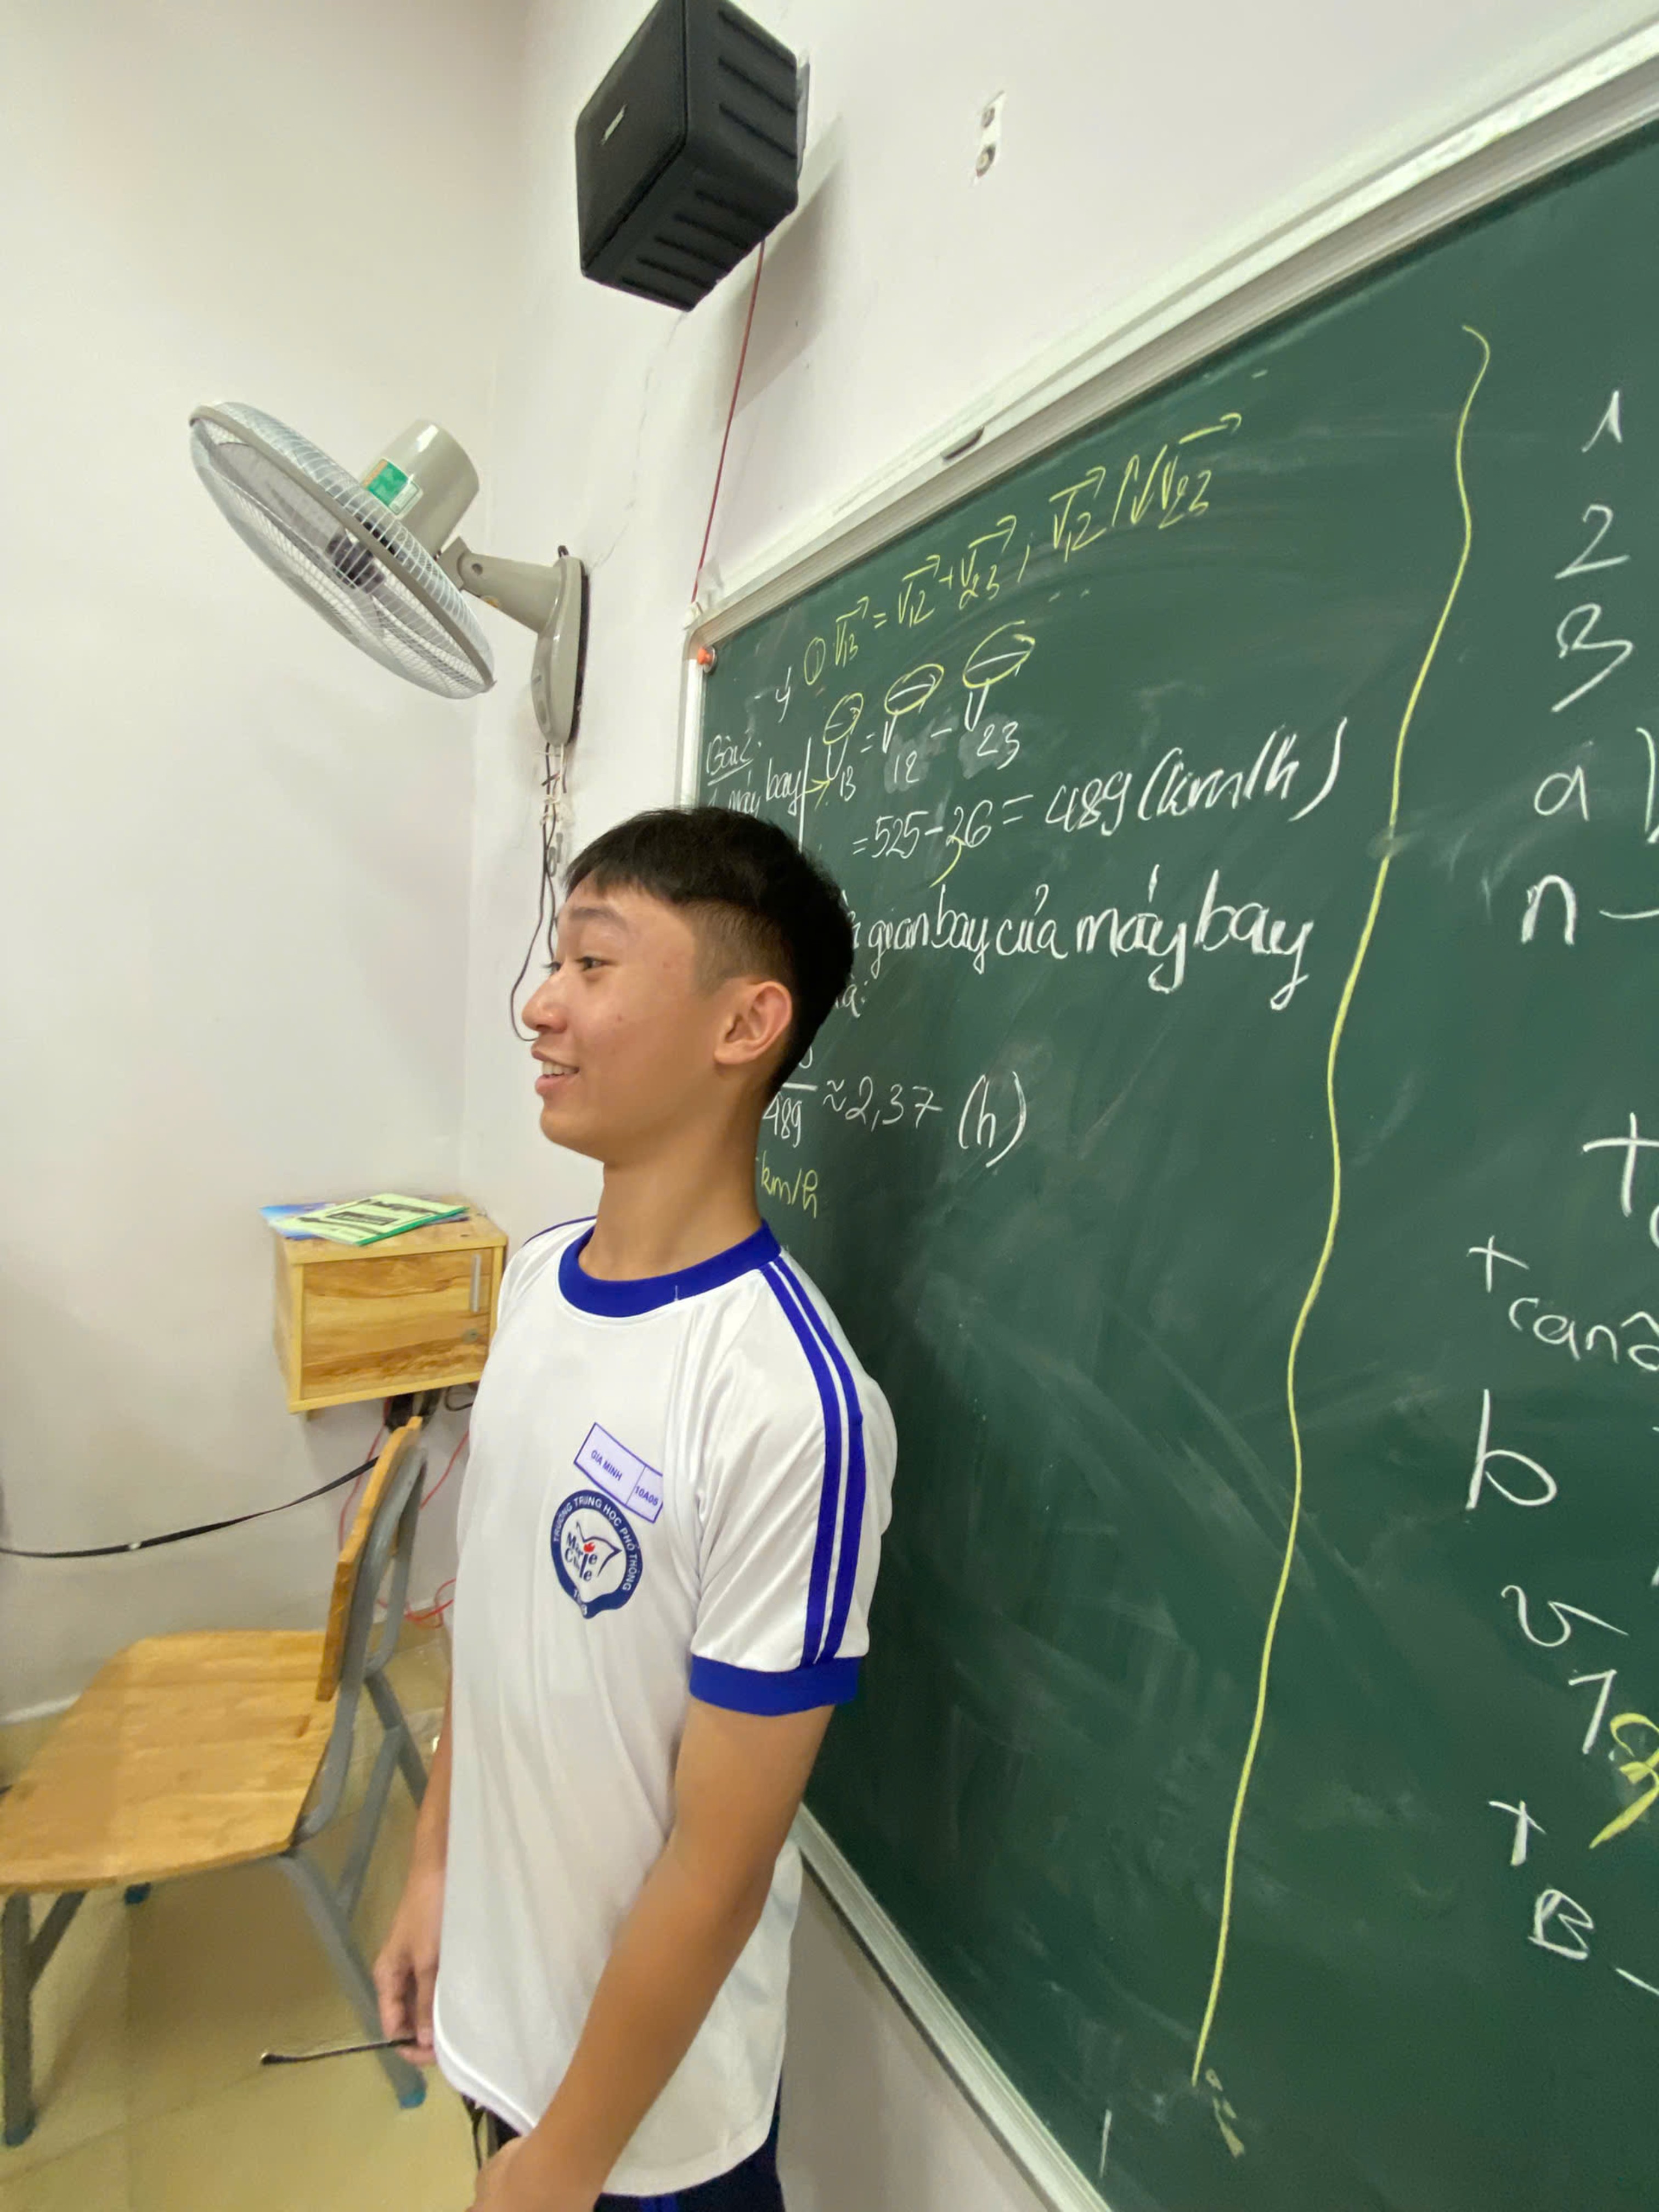 ① V₁₃ = V₁₂ + V₂₃ ; V₁₂ ↑↓ V₂₃
V₁₃ = V₁₂ - V₂₃
Bài 2:
máy bay
= 525 - 36 = 489 (km/h)
gian bay của máy bay
là:
489 ≈ 2,37 (h)
km/h
1
2
3
a
n -
+
+
b
v
+
B -
GIA MINH 10A05
TRƯỜNG TRUNG HỌC PHỔ THÔNG
Marie
Curie